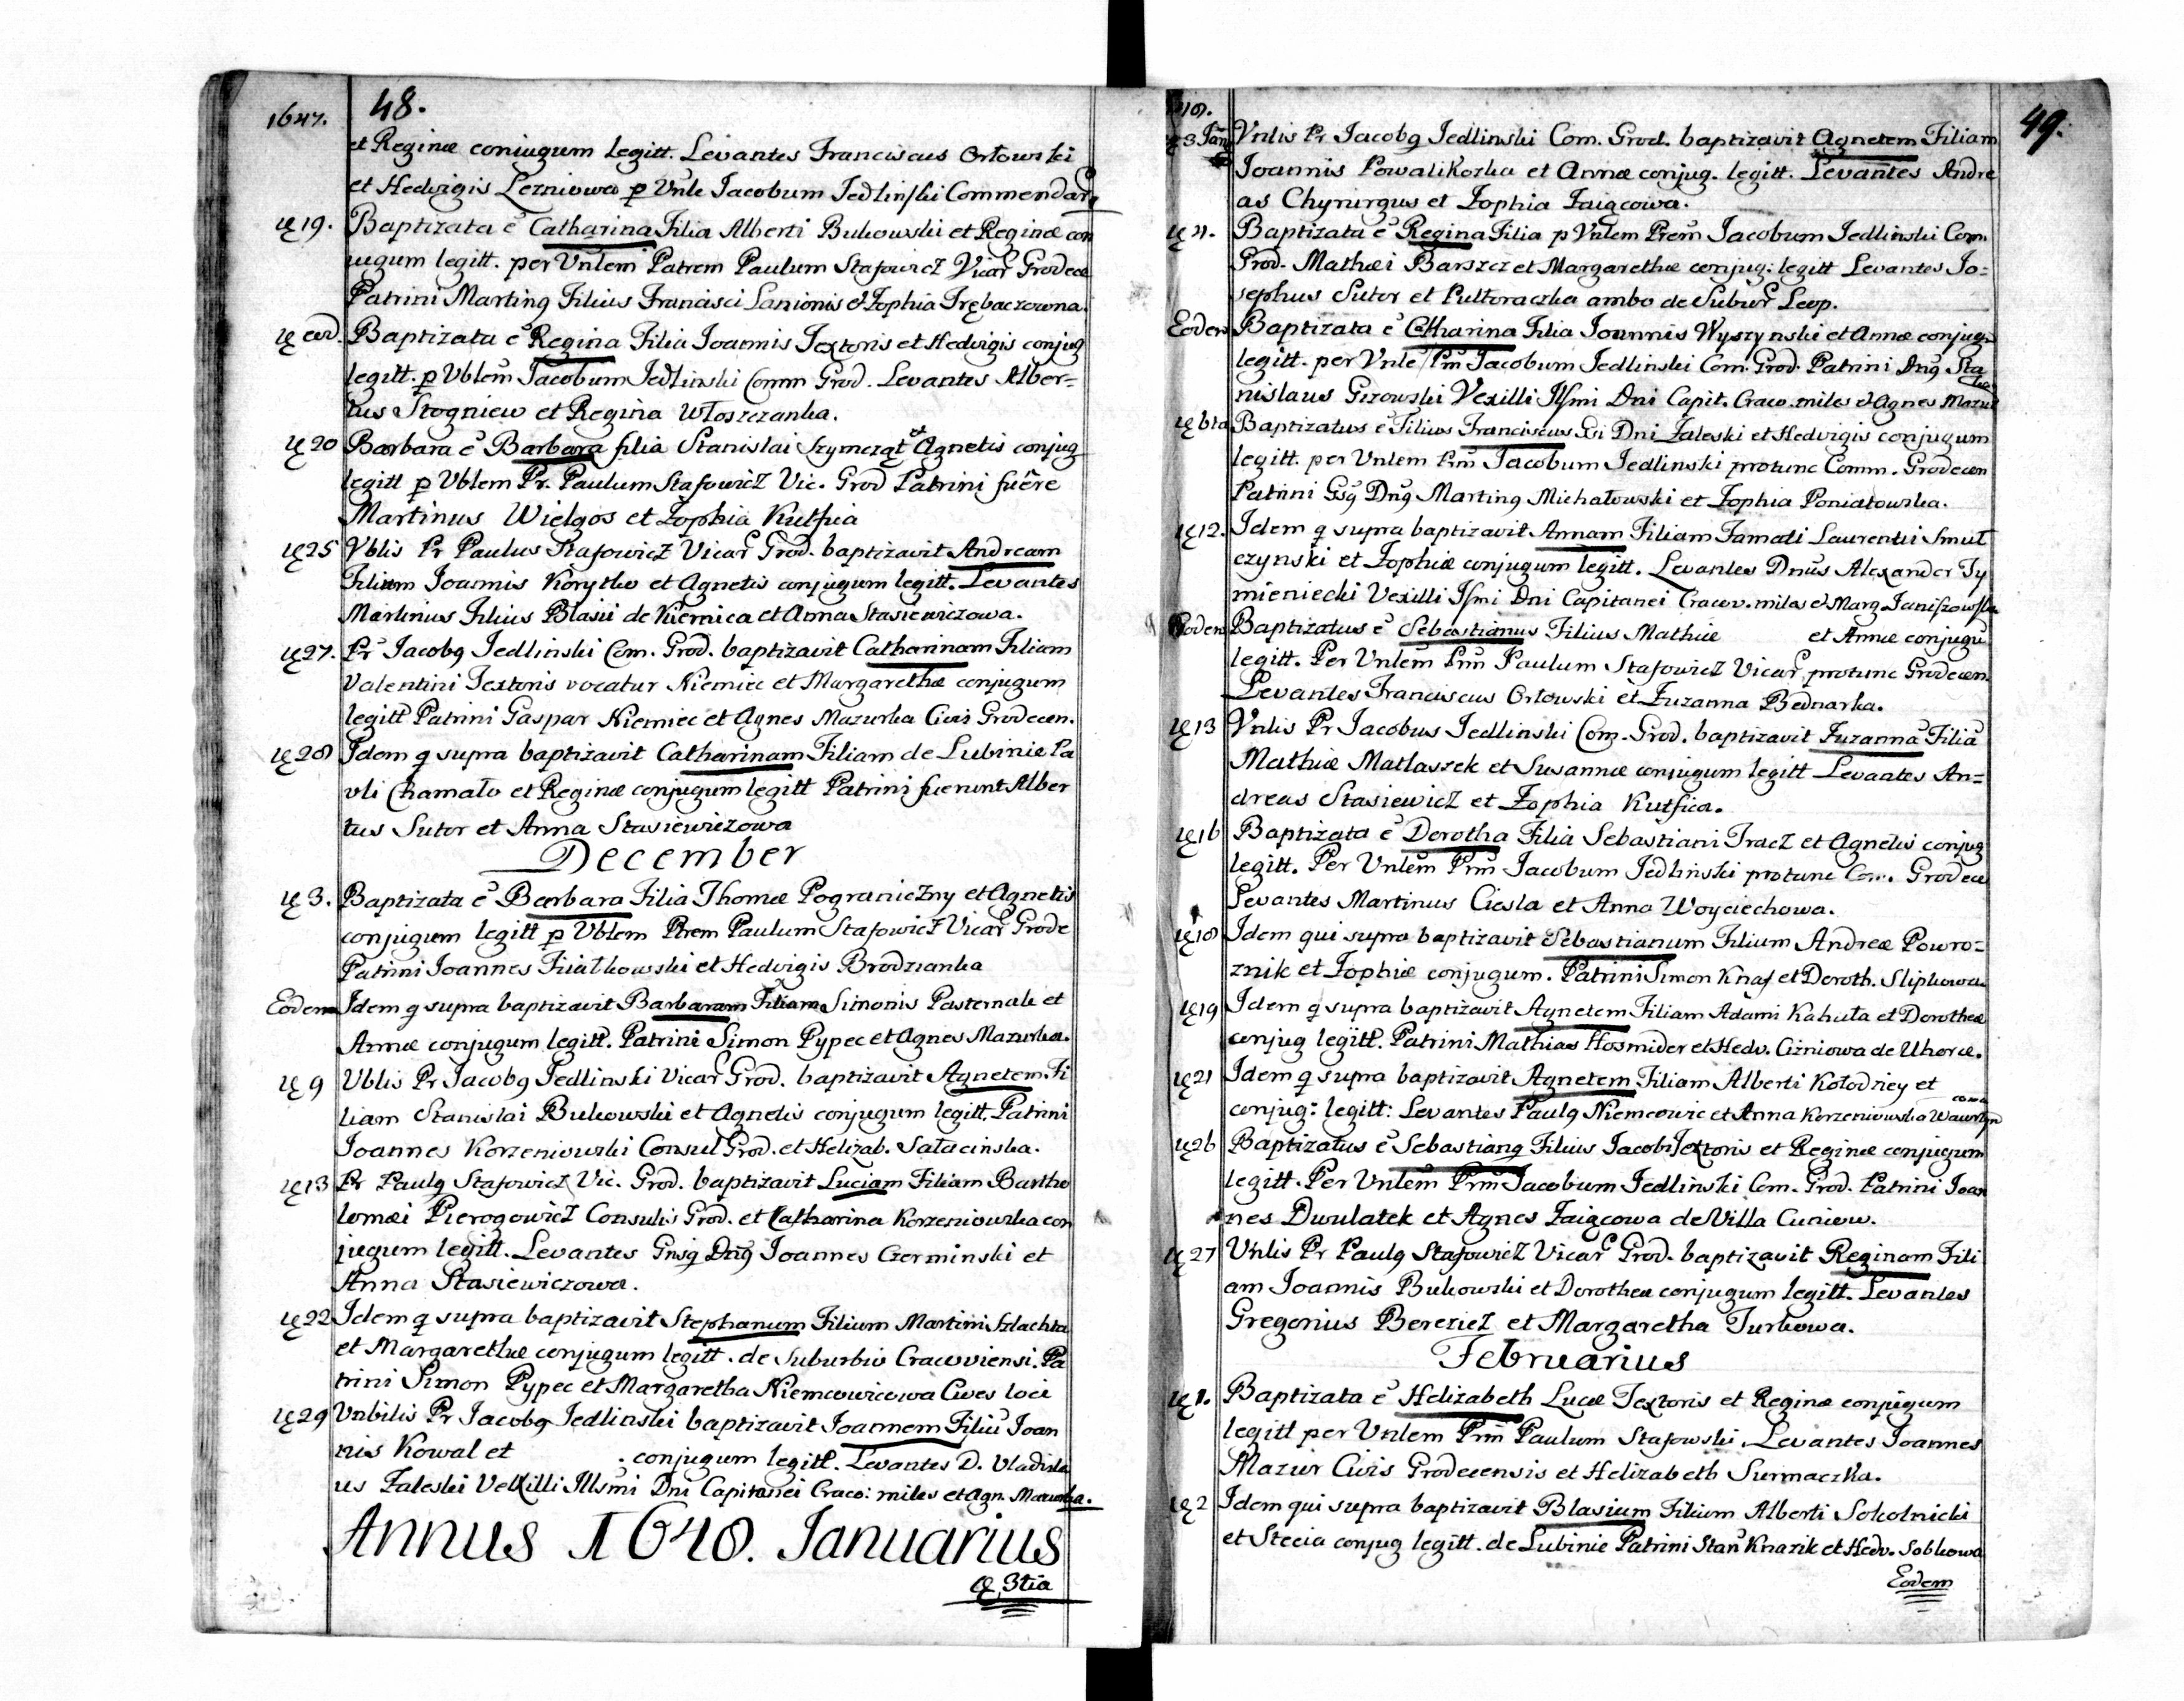 1647. 48.
et Reginæ coniugum legitt. Levantes Franciscus Orłowski
et Hedvigis Lezniowa p Vnle Jacobum Jedlinski Commendar
19. Baptizata e Catharina Filia Alberti Bukowski et Reginæ con
iugum legitt. per Vnlem Patrem Paulum Stafowicz Vicar Grodece
Patrini Marting Filius Francisci Lanionis et Zophia Trębaczowna.
eod. Baptizata e Regina Filia Joannis Textoris et Hedvigis conjug
legitt. p Vblem Jacobum Jedlinski Comm Grod. Levantes Alber=
tus Stogniew et Regina Włoszczanka.
20 Barbara e Barbara filia Stanislai Szymcząt et Agnetis conjug
legitt p Vblem Pr. Paulum Stafowicz Vic. Grod Patrini fuêre
Martinus Wielgos et Zophia Kutfia
25 Vblis Pr Paulus Stafowicz Vicar Grod. baptizavit Andream
Filium Joannis Korytko et Agnetis conjugum legitt. Levantes
Martinus Filius Blasii de Kiernica et Anna Stasiewiczowa.
27. Pr Jacobg Jedlinski Com. Grod. baptizavit Catharinam Filiam
Valentini Textoris vocatur Niemiec et Margarethæ conjugum
legitt Patrini Gaspar Niemiec et Agnes Mazurka Civis Grodecen.
28 Idem q supra baptizavit Catharinam Filiam de Lubinie Pa
uli Chamało et Reginæ conjugum legitt Patrini fuerunt Alber
tus Sutor et Anna Stasiewiezowa
December
3. Baptizata e Barbara Filia Thomæ Pograniczny et Agnetis
conjugum legitt p Vblem Prem Paulum Stafowicz Vicar Grode
Patrini Joannes Fiiałkowski et Hedvigis Brodzianka
Eodem Idem q supra baptizavit Barbaram Filiam Simonis Pasternak et
Annæ conjugum legitt. Patrini Simon Pypec et Agnes Mazurka.
9 Vblis Pr Jacobg Jedlinski Vicar Grod. baptizavit Agnetem Fi
liam Stanislai Bukowski et Agnetis conjugum legitt. Patrini
Joannes Korzeniowski Consul Grod. et Helizab. Sałacinska.
13 Pr Paulg Stafowicz Vic. Grod. baptizavit Luciam Filiam Bartho
lomæi Pierogowicz Consulis Grod. et Catharina Korzeniowska con
jugum legitt. Levantes Gnsq Dng Joannes Czerminski et
Anna Stasiewiczowa.
22 Idem q supra baptizavit Stephanum Filium Martini Szlachta
et Margarethæ conjugum legitt. de Suburbio Cracoviensi. Pa
trini Simon Pypec et Margaretha Niemcowicowa Cives loci
29 Vnbilis Pr Jacobg Jedlinski baptizavit Joannem Filiu Joan
nis Kowal et . conjugum legitt. Levantes D. Vladisla
us Zaleski Vexilli Illsmi Dni Capitanei Craco: miles et Agn. Mazurka.
Annus 1648. Januarius
3tia
49.
3 Jan Vnlis Pr Jacobg Jedlinski Com. Grod. baptizavit Agnetem Filiam
Joannis Powalikozka et Annæ conjug. legitt. Levantes Andre
as Chyrurgus et Zophia Zaigcowa.
4. Baptizata e Regina Filia p Vnlem Prem Jacobum Jedlinski Com.
Grod. Mathæi Barszcz et Margarethæ conjug: legitt Levantes Jo=
sephus Sutor et Pułtoraczka ambo de Subur Leop.
Eodem Baptizata e Catharina Filia Joannis Wyszynski et Annæ conjug.
legitt. per Vnle Prm Jacobum Jedlinski Com. Grod. Patrini Dng Sta
nislaus Gizowski Vexilli Illsmi Dni Capit. Craco. miles et Agnes Mazur
ka
6ta Baptizatus e Filius Franciscus Gsi Dni Zaleski et Hedvigis conjugum
legitt. per Vnlem Prm Jacobum Jedlinski protunc Comm. Grodecen
Patrini Gsg Dng Marting Michałowski et Zophia Poniatowska.
12. Idem q supra baptizavit Annam Filiam Famati Laurentii Smul
czynski et Zophiæ conjugum legitt. Levantes Dnus Alexander Ty
mieniecki Vexilli Ismi Dni Capitanei Cracov. miles et Marg. Janiszowska
Eodem Baptizatus e Sebastianus Filius Mathiæ et Annæ conjugu
legitt. Per Vnlem Prm Paulum Stafowicz Vicar protunc Grodecen.
Levantes Franciscus Orłowski et Zuzanna Bednarka.
13 Vnlis Pr Jacobus Jedlinski Com. Grod. baptizavit Zuzanna Filia
Mathiæ Matlaszek et Susannæ conjugum legitt Levantes An=
dreas Stasiewicz et Zophia Kutfia.
16 Baptizata e Dorotha Filia Sebastiani Tracz et Agnetis conjug
legitt. Per Vnlem Prm Jacobum Jedlinski protunc Com. Grodece
Levantes Martinus Ciesla et Anna Woyciechowa.
18 Idem qui supra baptizavit Sebastianum Filium Andreæ Powro=
znik et Zophiæ conjugum. Patrini Simon Knaf et Doroth. Slipkowa
19 Idem q supra baptizavit Agnetem Filiam Adami Kahuta et Dorotheæ
conjug legitt. Patrini Mathias Hosmider et Hedv. Ciżniowa de Uhorce.
21 Idem q supra baptizavit Agnetem Filiam Alberti Kołodziey et
conjug: legitt: Levantes Paulg Niemcowic et Anna Korzeniowska Wawrzyn
cowa
26 Baptizatus e Sebastiang Filius Jacobi Textoris et Reginæ conjugum
legitt. Per Vnlem Prm Jacobum Jedlinski Com. Grod. Patrini Joan
nes Dwulatek et Agnes Zaigcowa de Villa Cuniow.
27 Vnlis Pr Paulg Stafowicz Vicar Grod. baptizavit Reginam Fili
am Joannis Bukowski et Dorothea conjugum legitt. Levantes
Gregorius Berezicz et Margaretha Turkowa.
Februarius
1. Baptizata e Helizabeth Lucæ Textoris et Reginæ conjugum
legitt per Vnlem Prm Paulum Stafowski. Levantes Joannes
Mazur Civis Grodecensis et Helizabeth Surmaczka.
2 Idem qui supra baptizavit Blasium Filium Alberti Sokolnicki
et Stecia conjug legitt. de Lubinie Patrini Stan Knazik et Hedv. Sobkowa
Eodem